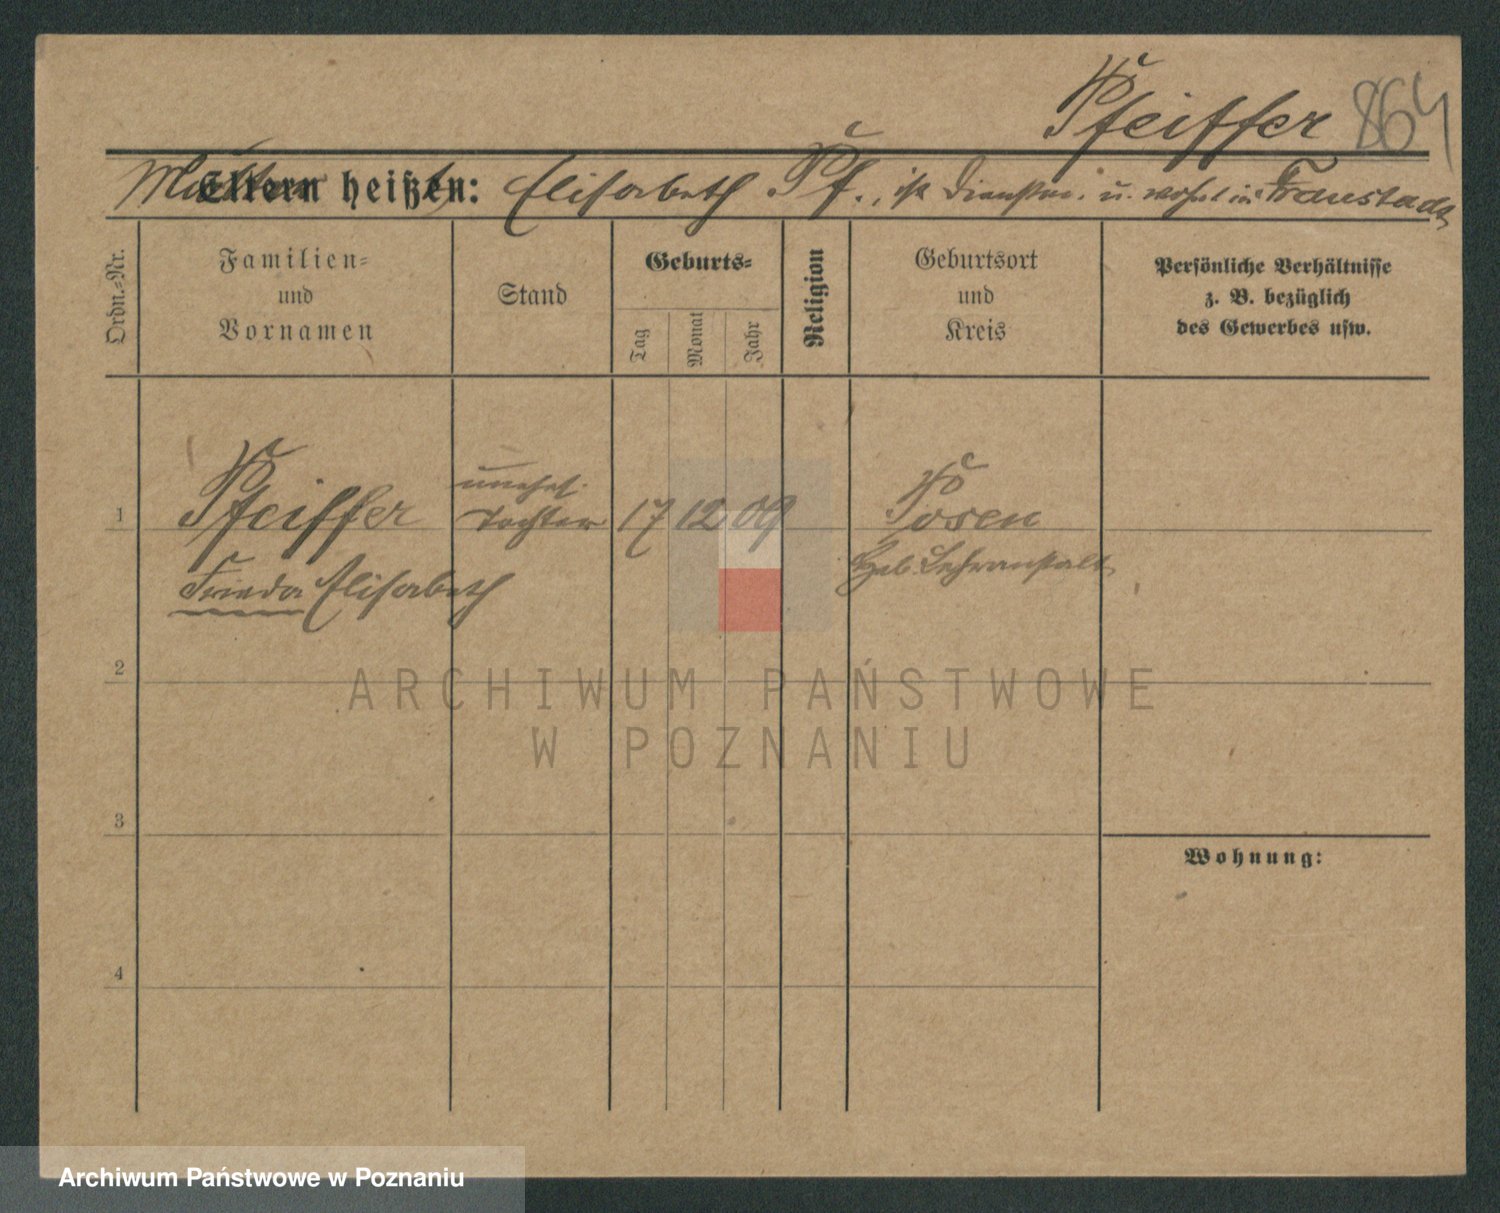 Pfeiffer 864
Mutter Eltern heißen: Elisabeth Pf., ist Dienstm. u. wohnt in Fraustadt
Ordn.-Nr.
Familien-
und
Vornamen
Stand
Geburts-
Tag
Monat
Jahr
Religion
Geburtsort
und
Kreis
Persönliche Verhältnisse
z. B. bezüglich
des Gewerbes usw.
unehel.
1 Pfeiffer Tochter 17 12 09 Posen
Frieda Elisabeth
Heb. Lehranstalt
2
ARCHIWUM PAŃSTWOWE
W POZNANIU
3
Wohnung:
4
Archiwum Państwowe w Poznaniu